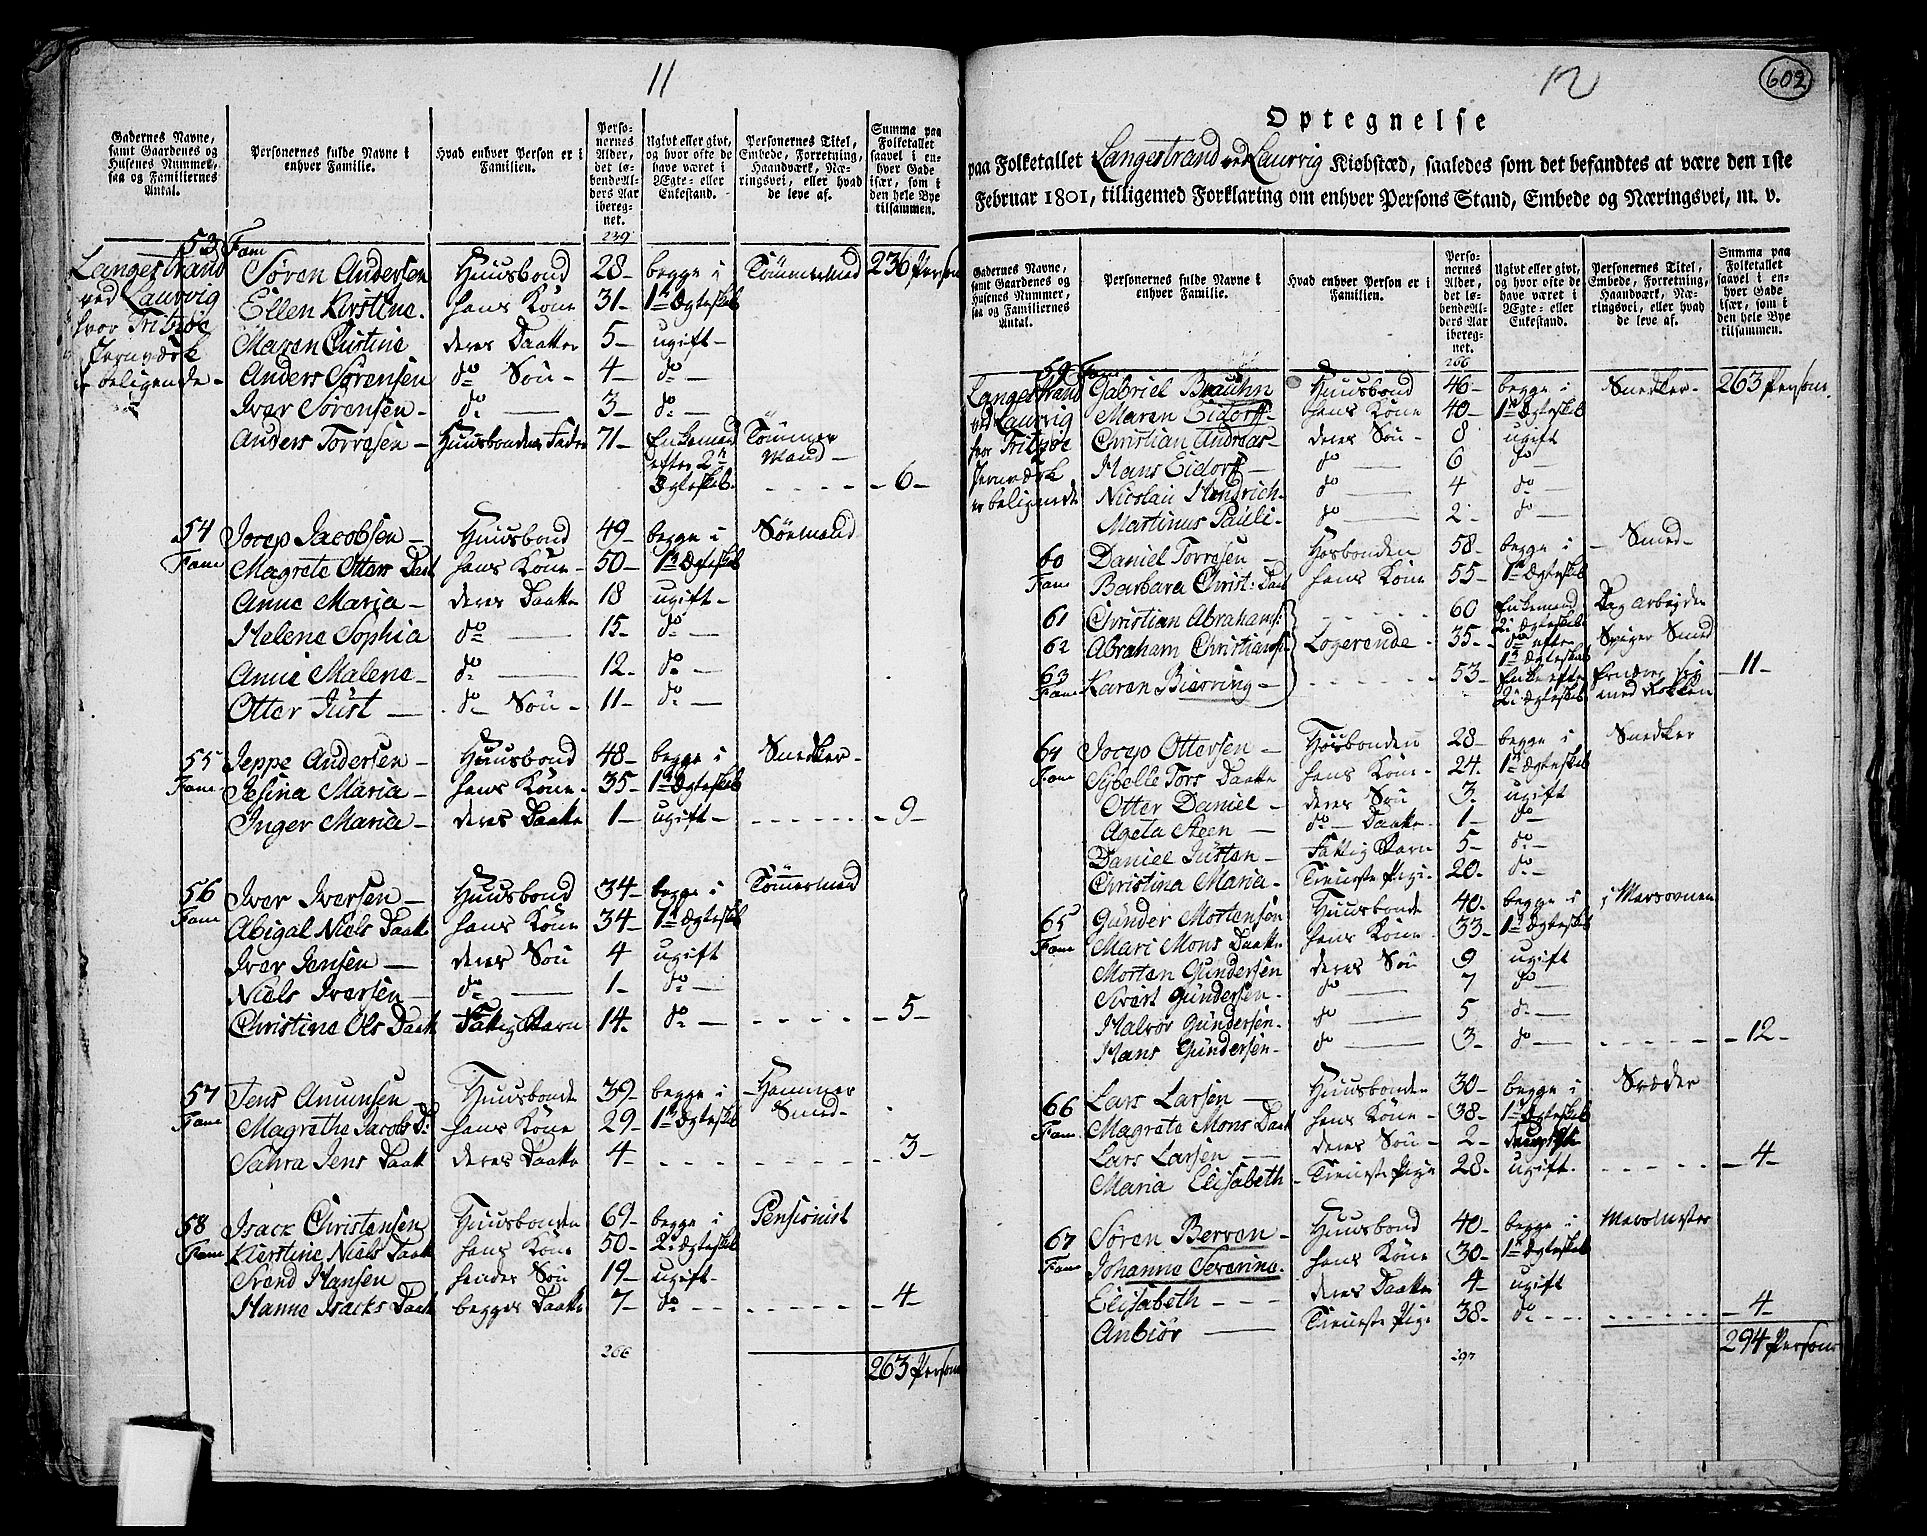 11
Gadernes Navne, samt Gaardenes og Husenes Nummer, saa og Familiernes Antal.
Personernes fulde Navne i enhver Familie.
Hvad enhver Person er i Familien.
Personernes Alder, det løbende Alders Aar iberegnet.
Ugivt eller givt, og hvor ofte de have været i Ægte- eller Enkestand.
Personernes Titel, Embede, Forretning, Haandværk, Næringsvei, eller hvad de leve af.
Summa paa Folketallet saavel i enhver Gade især, som i den hele Bye tilsammen.
239
53 Fam
Langestrand Søren Andersen Huusbond 28 begge i Tömmermand 236 Person
ved Laurvig Ellen Kirstine hans Kone 31 1te Ægteskab
hvor Fritzøe Maren Cristine deres Daatter 5 ugift
Jernværk Anders Sørensen do Søn 4 do
beligende Iver Sørensen do 3 do
Anders Torresen Huusbondens Fader 71 Enkemand Tömmer
efter 2n Mand
Ægteskab 6
54 Jocep Jacobsen Huusbond 49 begge i Søemand
Fam Magrete Otters Daat hans Kone 50 1te Ægteskab
Anne Maria deres Daatter 18 ugift
Helene Sophia do 15 do
Anne Malene do 12 do
Otter Just do Søn 11 do
55 Jeppe Andersen Huusbond 48 begge i Snedker
Fam Jesina Maria hans Kone 35 1te Ægteskab
Inger Maria deres Daatter 1 ugift 9
56 Iver Iversen Huusbond 34 begge i Tömmermand
Fam Abigal Niels Daatt hans Kone 34 1te Ægteskab
Iver Jensen deres Søn 4 ugift
Niels Iversen do 1 do
Christine Ols Daatt Fattig Barn 14 do 5
57 Jens Amunsen Huusbonde 39 begge i Hammer
Fam Magrethe Jacobs D: hans Kone 29 1te Ægteskab Smed
Sahra Jens Daatt deres Daatter 4 3
58 Isack Christensen Huusbonden 69 begge i Pensionist
Fam Kierstine Niels Daatt hans Kone 50 2: Ægteskab
Svend Hansen hendes Søn 19 ugift
Hanne Isacks Daatt begges Daatter 7 do 4
266
263 Person
12
602
Optegnelse
paa Folketallet Langestrand ved Laurvig Kiøbstæd, saaledes som det befandtes at være den 1ste
Februar 1801, tilligemed Forklaring om enhver Persons Stand, Embede og Næringsvei, m. v.
Gadernes Navne, samt Gaardenes og Husenes Nummer, saa og Familiernes Antal.
Personernes fulde Navne i enhver Familie.
Hvad enhver Person er i Familien.
Personernes Alder, det løbende Alders Aar iberegnet.
Ugivt eller givt, og hvor ofte de have været i Ægte- eller Enkestand.
Personernes Titel, Embede, Forretning, Haandværk, Næringsvei, eller hvad de leve af.
Summa paa Folketallet saavel i enhver Gade især, som i den hele Bye tilsammen.
266
59 Fam
Langestrand Gabriel Brauhn Huusbond 46 begge i Snedker 263 Person
ved Laurvig Maren Eidorff hans Kone 40 1te Ægteskab
hvor Fritzøe Christian Andreas deres Søn 8 ugift
Jernværk Hans Eidorff do 6 do
er beligende Nicolai Hendrich do 4 do
Martinus Pauli do 2 do
60 Daniel Torresen Hosbonden 58 begge i Smed
Fam Barbara Christ: Daat hans Kone 55 1te Ægteskab
61 Christian Abrahams: 60 Enkemand Dag arbejder
2: Ægteskab
62 Abraham Christians: Logerende 35 do efter Spiger Smed
1te Ægteskab
63 Karen Bierring 53 Enke efter Ernærer sig 11
Fam 2: Ægteskab med Rokken
64 Jocep Ottersen Hosbonden 28 begge i Snedker
Fam Sybelle Tors Daatter hans Kone 24 1te Ægteskab
Otter Daniel deres Søn 3 ugift
Ageta Steen do Daatter 1 do
Daniel Justen Fattig Barn 5 do
Christina Maria Tieneste Pige 20 do
65 Gunder Mortensøn Huusbonde 40 begge i i Masovnen
Fam Mari Mons Daatter hans Kone 33 1te Ægteskab
Morten Gundersen deres Søn 9 ugift
Sivert Gundersen do 7 do
Halvor Gundersen do 5 do
Hans Gundersen do 3 do 12
66 Lars Larsen Huusbonde 30 begge i
Fam Magrete Mons Daat hans Kone 38 1te Ægteskab
Lars Larsen deres Søn 2
Maria Elisabeth Tieneste Pige 28 ugift 4
67 Søren Berven Huusbond 40 begge i
Fam Johanne Severine hans Kone 30 1te Ægteskab
Elisabeth deres Daatter 4 ugift
Anbiør Tieneste Pige 38 do 4
297
294 Person